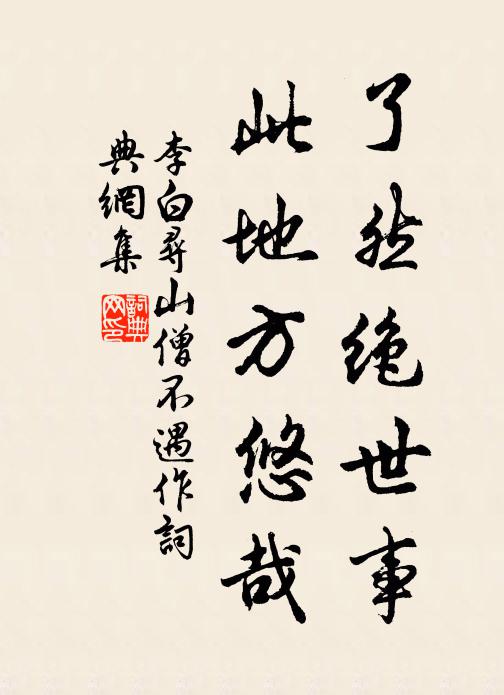 了然绝世事
此地方悠哉
李白尋山僧不遇作詞
典網集
詞典網印